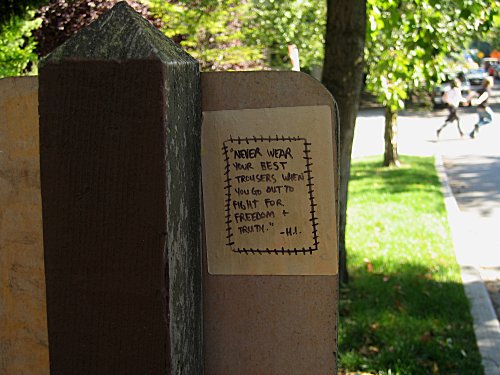 "NEVER WEAR
YOUR BEST
TROUSERS WHEN
YOU GO OUT TO
FIGHT FOR
FREEDOM +
TRUTH." -H.I.